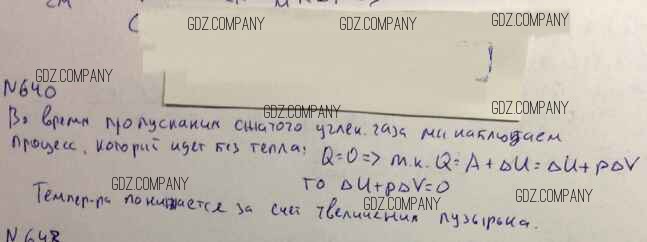 GDZ.COMPANY
GDZ.COMPANY GDZ.COMPANY GDZ.COMPANY
см
GDZ.COMPANY GDZ.COMPANY
N640
GDZ.COMPANY GDZ.COMPANY
Во время пропускания сжатого углек. газа мы наблюдаем
процесс, который идет без тепла: Q=0 => т.к. Q=A+ΔU=ΔU+pΔV
то ΔU+pΔV=0
GDZ.COMPANY GDZ.COMPANY GDZ.COMPANY
Темпер-ра понижается за счет увеличения пузырька.
N 648